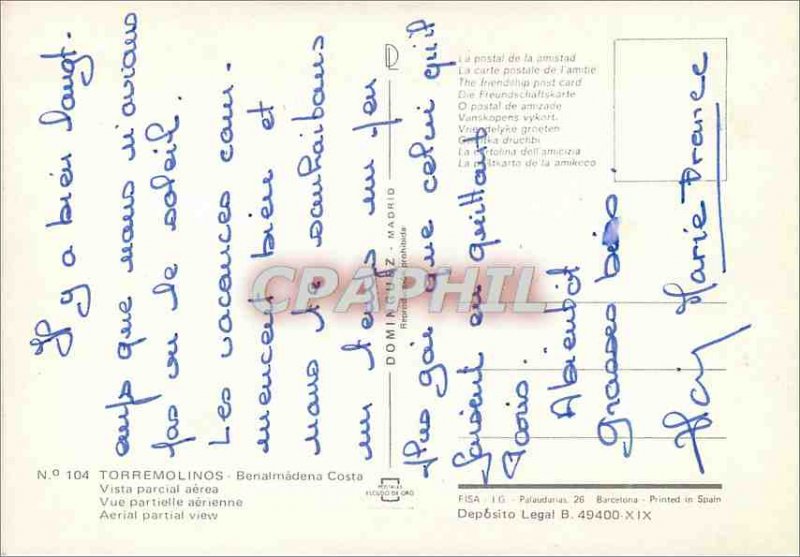 Il y a bien longt-
emps que nous n'avions
pas vu le soleil.
Les vacances com-
mencent bien et
nous te souhaitons
un temps un peu
plus gai que celui qu'il
faisait en quittant
Paris.
A bientôt
Grosses bises.
Marie France
La postal de la amistad
La carte postale de l'amitie
The friendship post card
Die Freundschäftskarte
O postal de amizade
Vanskopens vykort.
Vriendelyke groeten
druchbi
La cartolina dell'amicizia
La poŝtkarto de la amikeco
DOMINGUEZ - MADRID
Reprod. prohibida
CPAPHIL
N.º 104 TORREMOLINOS - Benalmádena Costa
Vista parcial aérea
Vue partielle aérienne
Aerial partial view
POSTALES
ESCUDO DE ORO
FISA - I G - Palaudarias, 26 Barcelona - Printed in Spain
Depósito Legal B. 49400-XIX